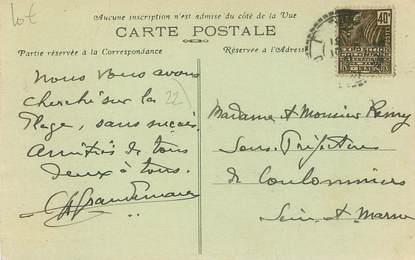 lot
Aucune inscription n'est admise du côté de la Vue
CARTE POSTALE
Partie réservée à la Correspondance
Réservée à l'Adresse
40c
Nous vous avons
cherché sur la
plage, sans succès.
Amitiés de tous
deux à tous.
22
Madame & Monsieur Remy
Sous-Préfecture
de Coulommiers
Seine & Marne